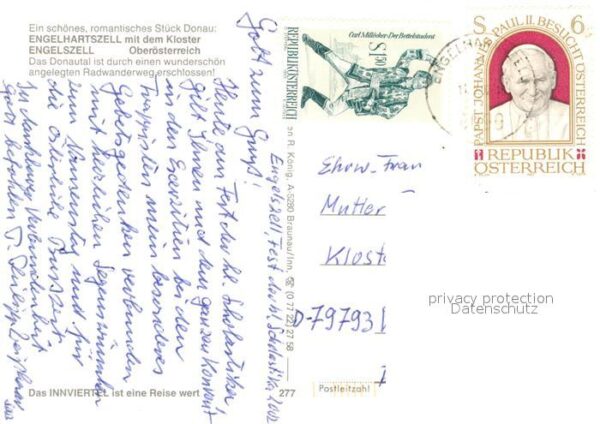 Ein schönes, romantisches Stück Donau:
ENGELHARTSZELL mit dem Kloster
ENGELSZELL Oberösterreich
Das Donautal ist durch einen wunderschön
angelegten Radwanderweg erschlossen!
Gott zum Gruß!
Engelszell, Fest der hl. Scholastika, 2002
Heute am Fest der hl. Scholastika
gilt Ihnen und dem ganzen Konvent
in den Exerzitien bei den
Trappisten mein besonderes
Gebetsgedenken verbunden
mit herzlichen Segenswünschen
zum Namenstag und für
die österliche Busszeit.
In dankbarer Verbundenheit
Gott befohlen P. Philipp
Das INNVIERTEL ist eine Reise wert
277
R. König, A-5280 Braunau/Inn. ☎ (0 77 22) 27 58
Carl Millöcker-Der Bettelstudent
S 1.50
REPUBLIK ÖSTERREICH
S 6
PAPST JOHANNES PAUL II. BESUCHT ÖSTERREICH
REPUBLIK
ÖSTERREICH
ENGELHAR
Ehrw. Frau
Mutter
Klost
D-79793
privacy protection
Datenschutz
Postleitzahl